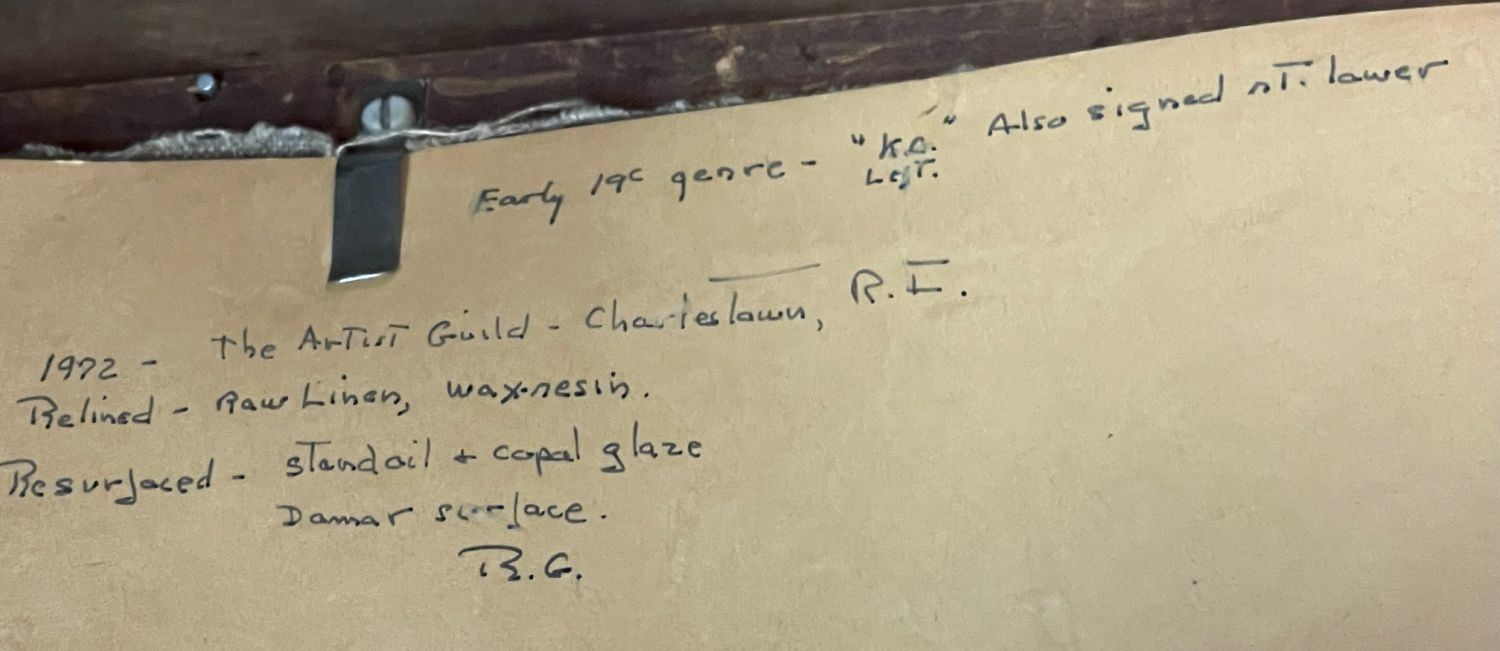 Early 19c genre - "K.O." Also signed at. lower
Left.
1972 - The Artist Guild - Charlestown, R.I.
Relined - Raw Linen, wax-resin.
Resurfaced - standoil + copal glaze
Damar surface.
R.G.